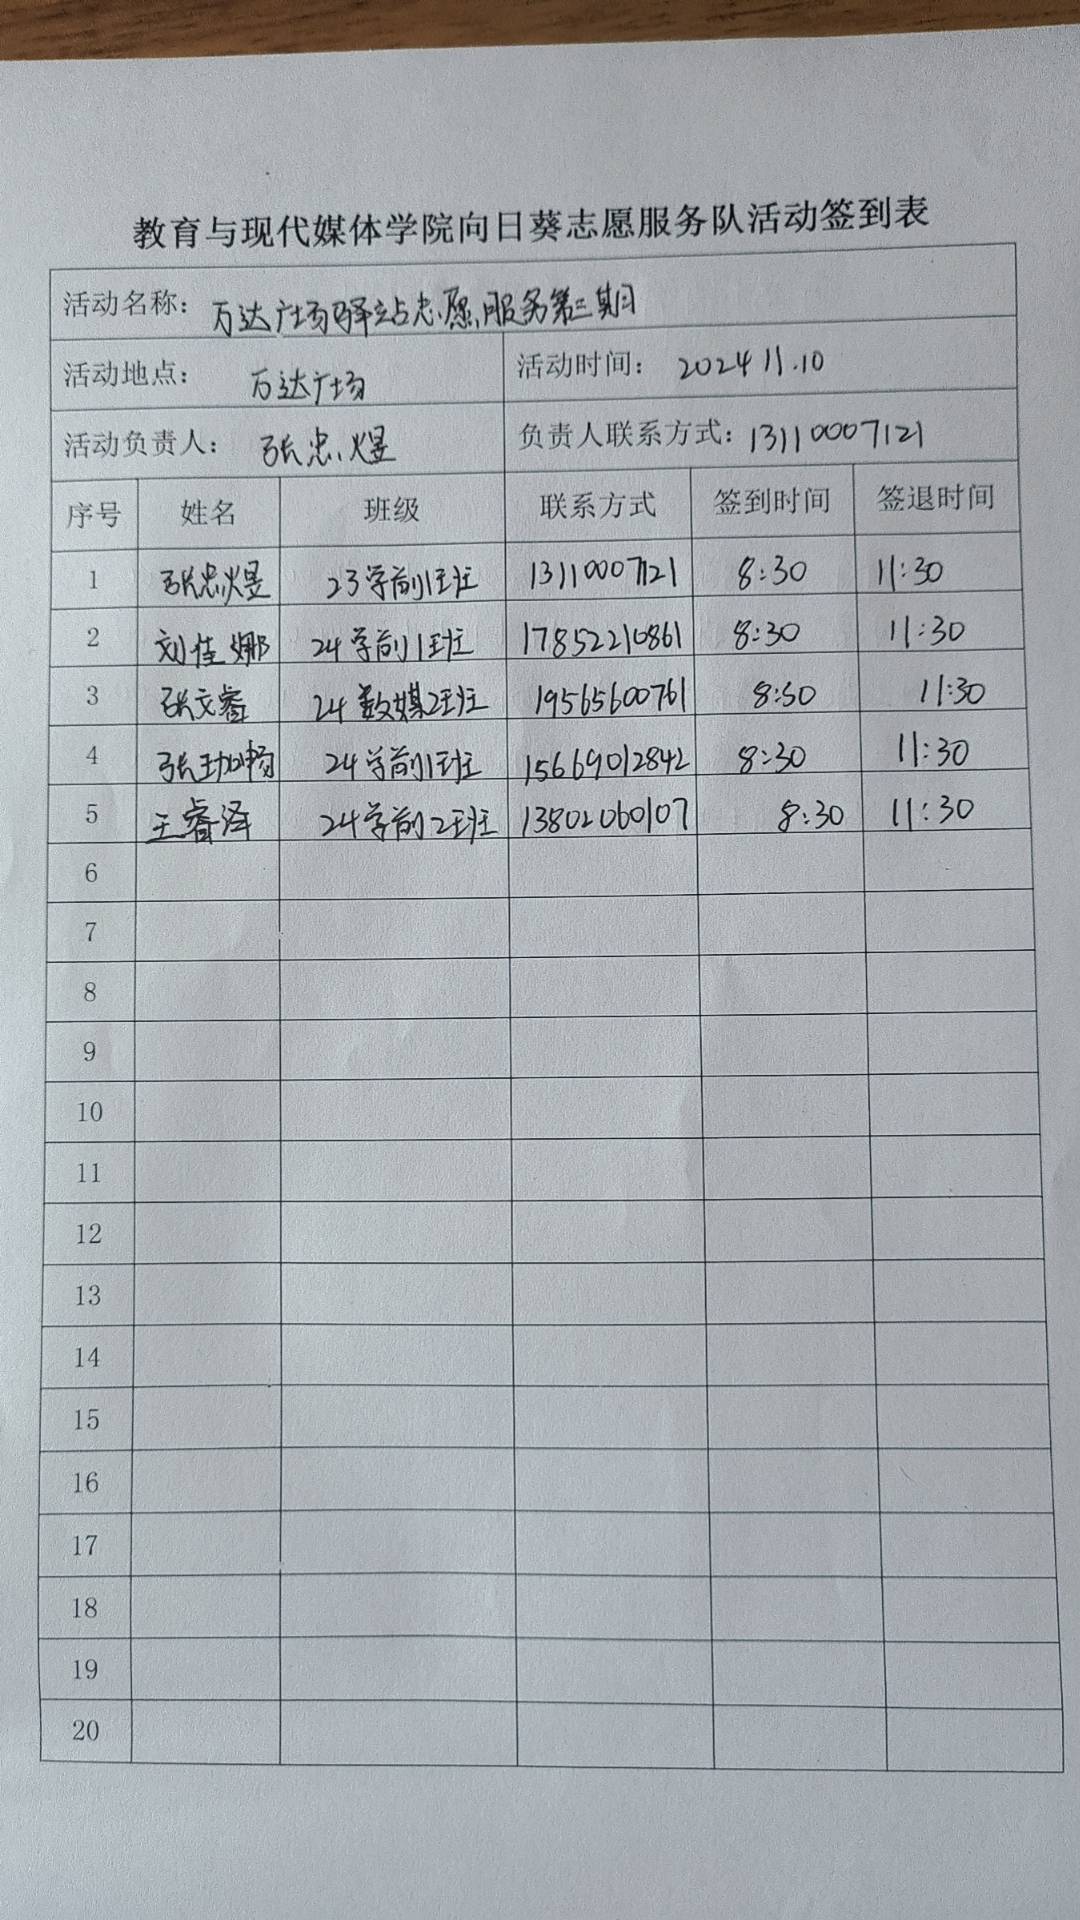 教育与现代媒体学院向日葵志愿服务队活动签到表
活动名称：万达广场驿站志愿服务第三期
活动地点：万达广场 活动时间：2024 11.10
活动负责人：张忠煜 负责人联系方式：13110007121
序号 姓名 班级 联系方式 签到时间 签退时间
1 张忠煜 23学前1班 13110007121 8:30 11:30
2 刘佳娜 24学前1班 17852210861 8:30 11:30
3 张文睿 24数媒2班 19565600761 8:30 11:30
4 张珈畅 24学前1班 15669012842 8:30 11:30
5 王睿泽 24学前2班 13802060107 8:30 11:30
6
7
8
9
10
11
12
13
14
15
16
17
18
19
20